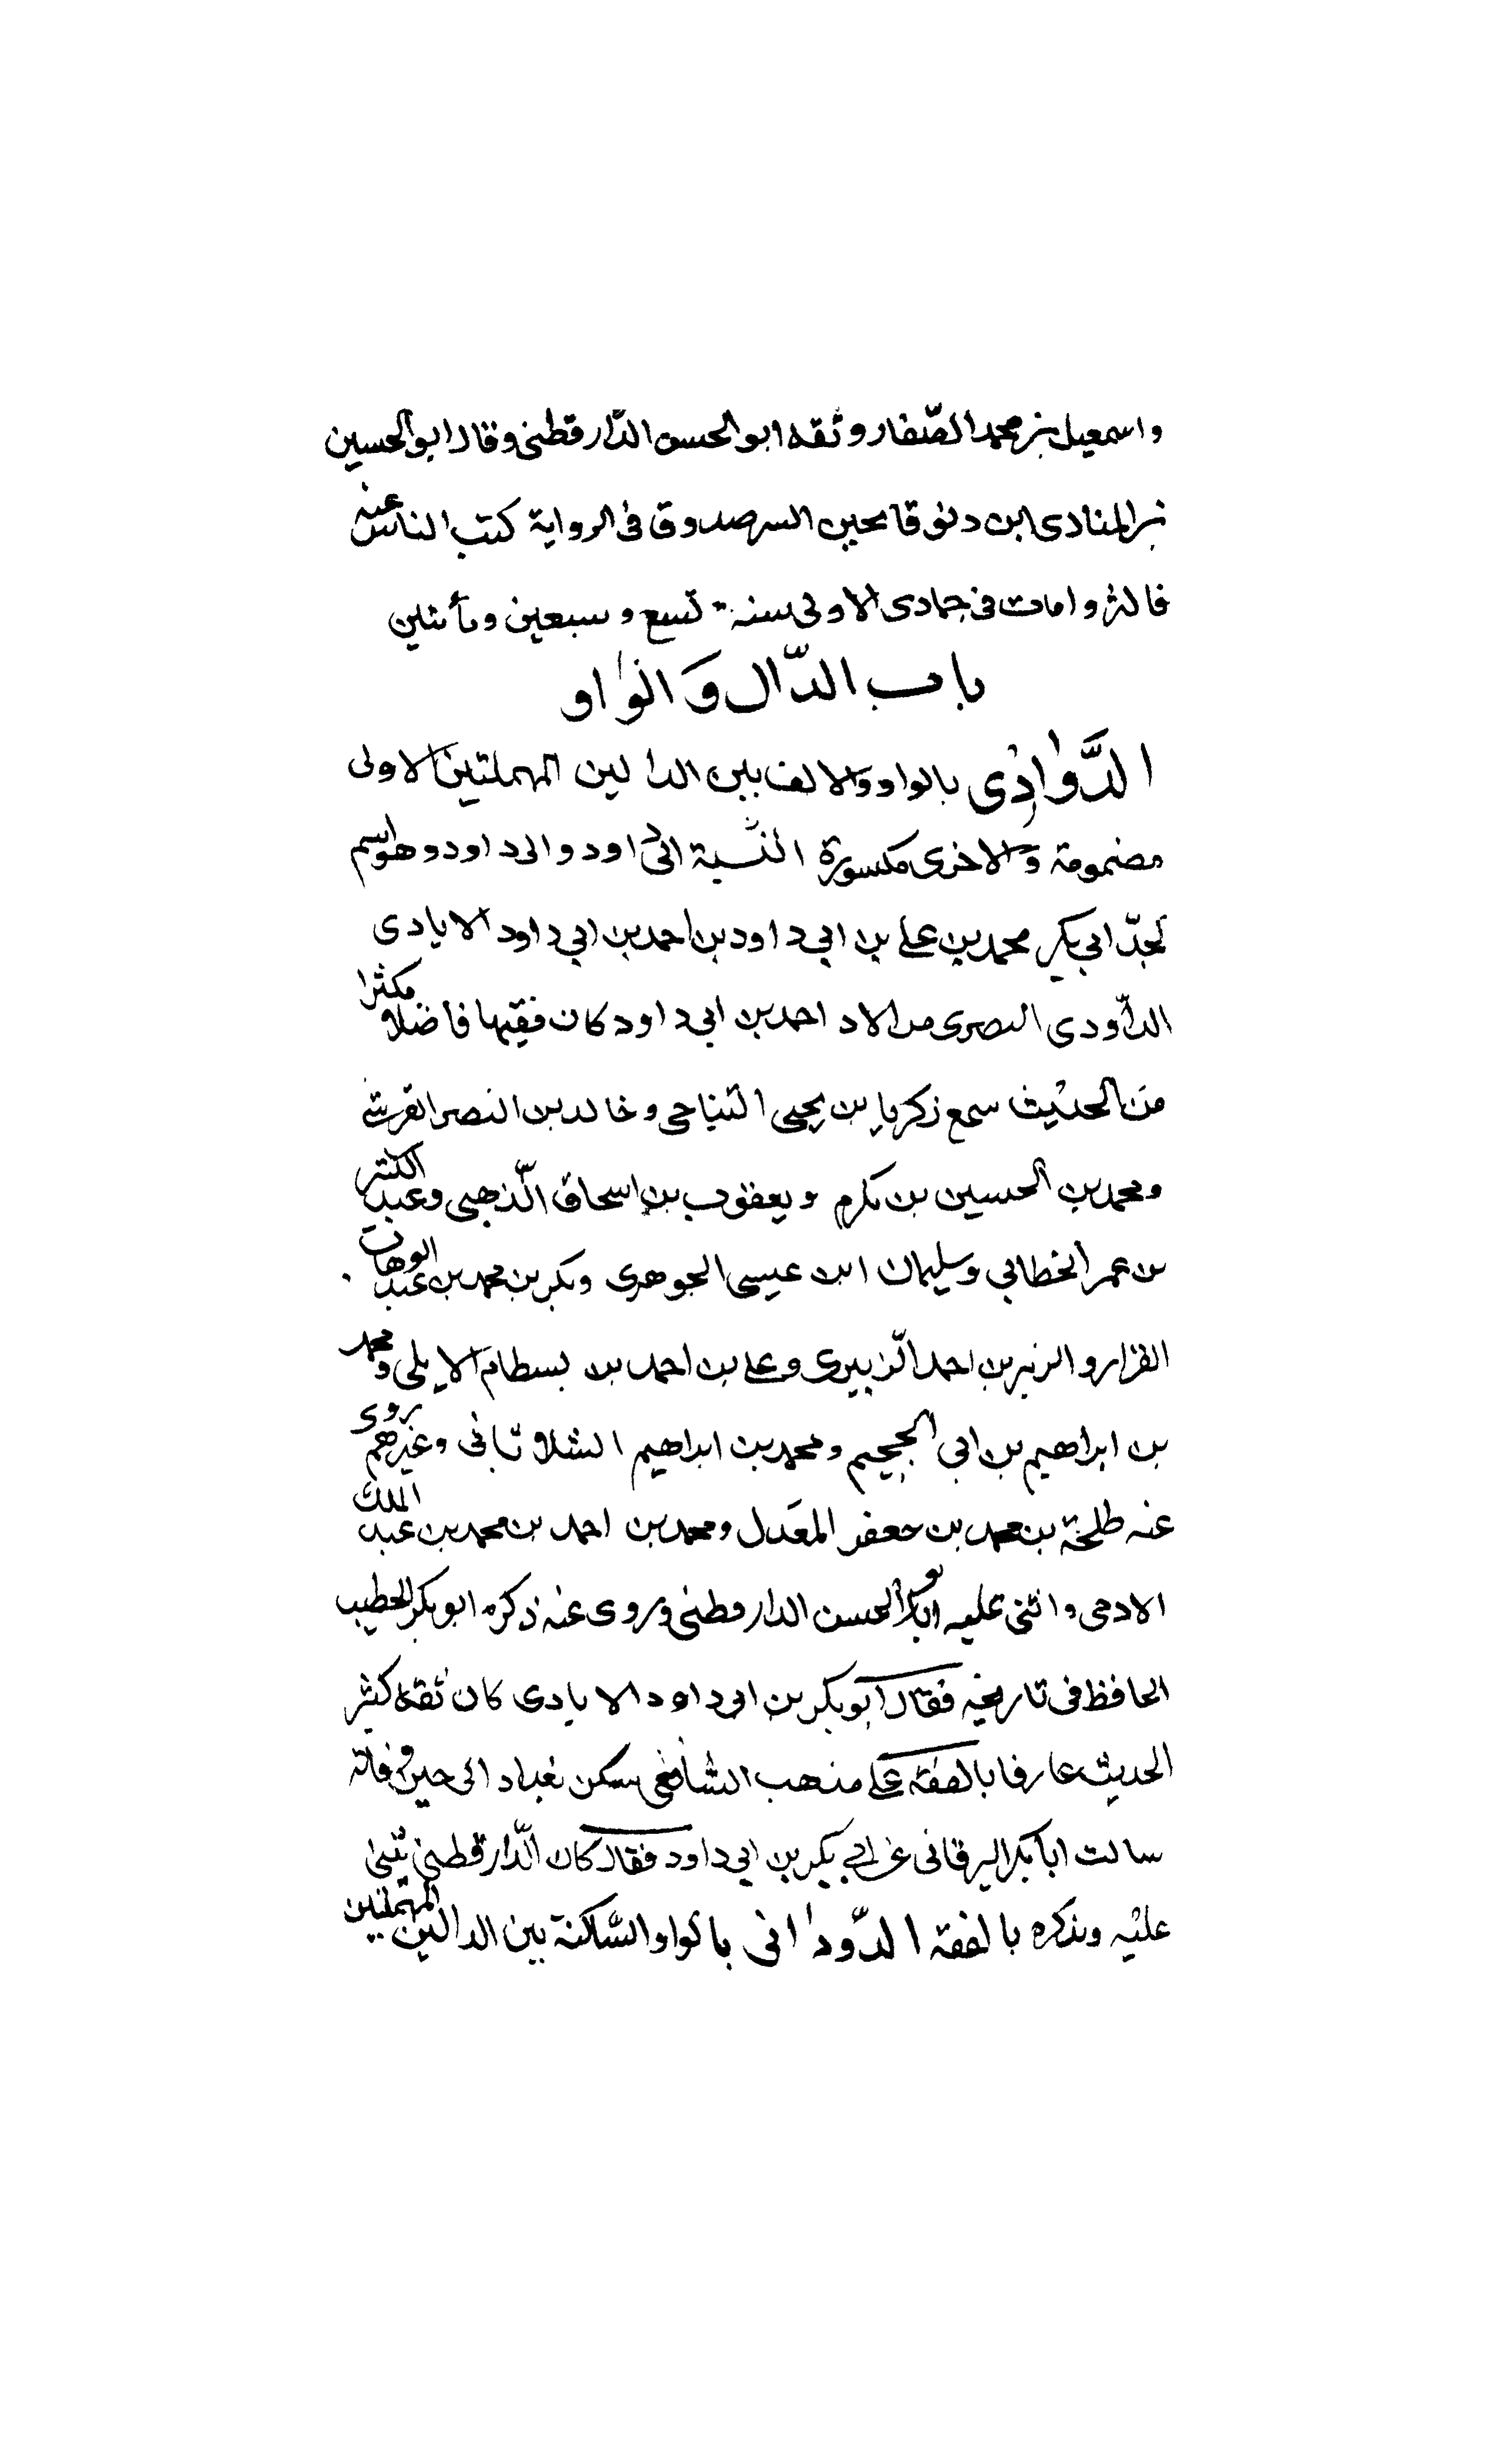 واسمعيل بن محمد الصّفار وثقه ابو الحسن الدّارقطنى وقال ابو الحسين
بن المنادى ابن دنوقا بحين السر صدوق فى الرواية كتب الناس عنه
قال وامات فى جمادى الاولى سنة تسع وسبعين ومأتين
باب الدّال وَالواو
الدَّوادِى بالواو والالف بين الدالين المهملتين الاولى
مضمومة والاخرى مكسورة النّسبة الى داود والى داود وهو اسم
لجدّ ابى بكر محمد بن على بن ابى داود بن احمد بن ابى داود الايادى
الدأودى البصرى من الاد احمد بن ابى داود كان فقيها فاضلا مكثرا
من الحديث سمع زكريا بن يحيى التناجى وخالد بن النصر القرشى
ومحمد بن الحسين بن مكرم ويعقوب بن اسحاق الّذهبى وعبد الكبتر
بن عمر الخطابى وسليمان ابن عيسى الجوهرى وبكر بن محمد بن عبد الوهاب
القزاز والزبير بن احمد الزّبيرى وعلى بن احمد بن بسطام الايلى ومحمد
بن ابراهيم بن ابى الججيم ومحمد بن ابراهيم الشلاثانى وغيرهم روى
عنه طلحة بن محمد بن جعفر المعَدل ومحمد بن احمد بن محمد بن عبد الملك
الادمى واثنى عليه ابو الحسن الدارقطنى وروى عنه ذكره ابو بكر الخطيب
الحافظ فى تاريخه فقال ابو بكر بن ابى داود الايادى كان ثقة كثير
الحديث عارفا بالفقه على مذهب الشافعى سكن بغداد الى حين وفاته
سالت ابا بكر البرقانى عن ابى بكر بن ابى داود فقال كان الدّارقطنى يثنى
عليه ويذكره بالفقه الدّودانى بالواو السّاكنة بين الدالين المهملتين